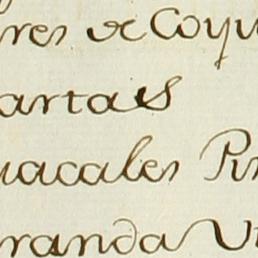 res de Coyu
artas
uacales Pri
randa Vi